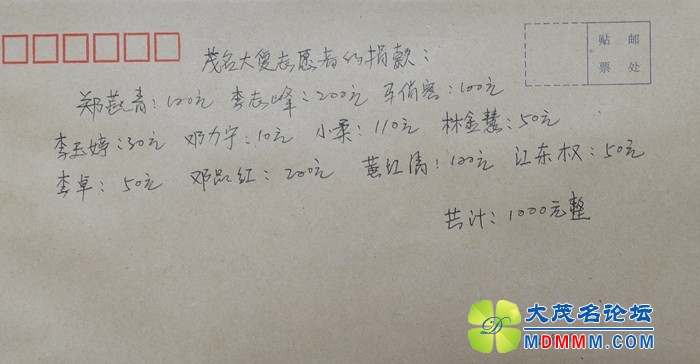 贴 邮
票 处
茂名大爱志愿者的捐款：
郑燕青：100元 李志峰：200元 车俏密：100元
李玉婷：30元 邓力宁：10元 小柔：110元 林金慧：50元
李卓：50元 邓品红：200元 黄红清：100元 江东权：50元
共计：1000元整
大茂名论坛
MDMMM.COM